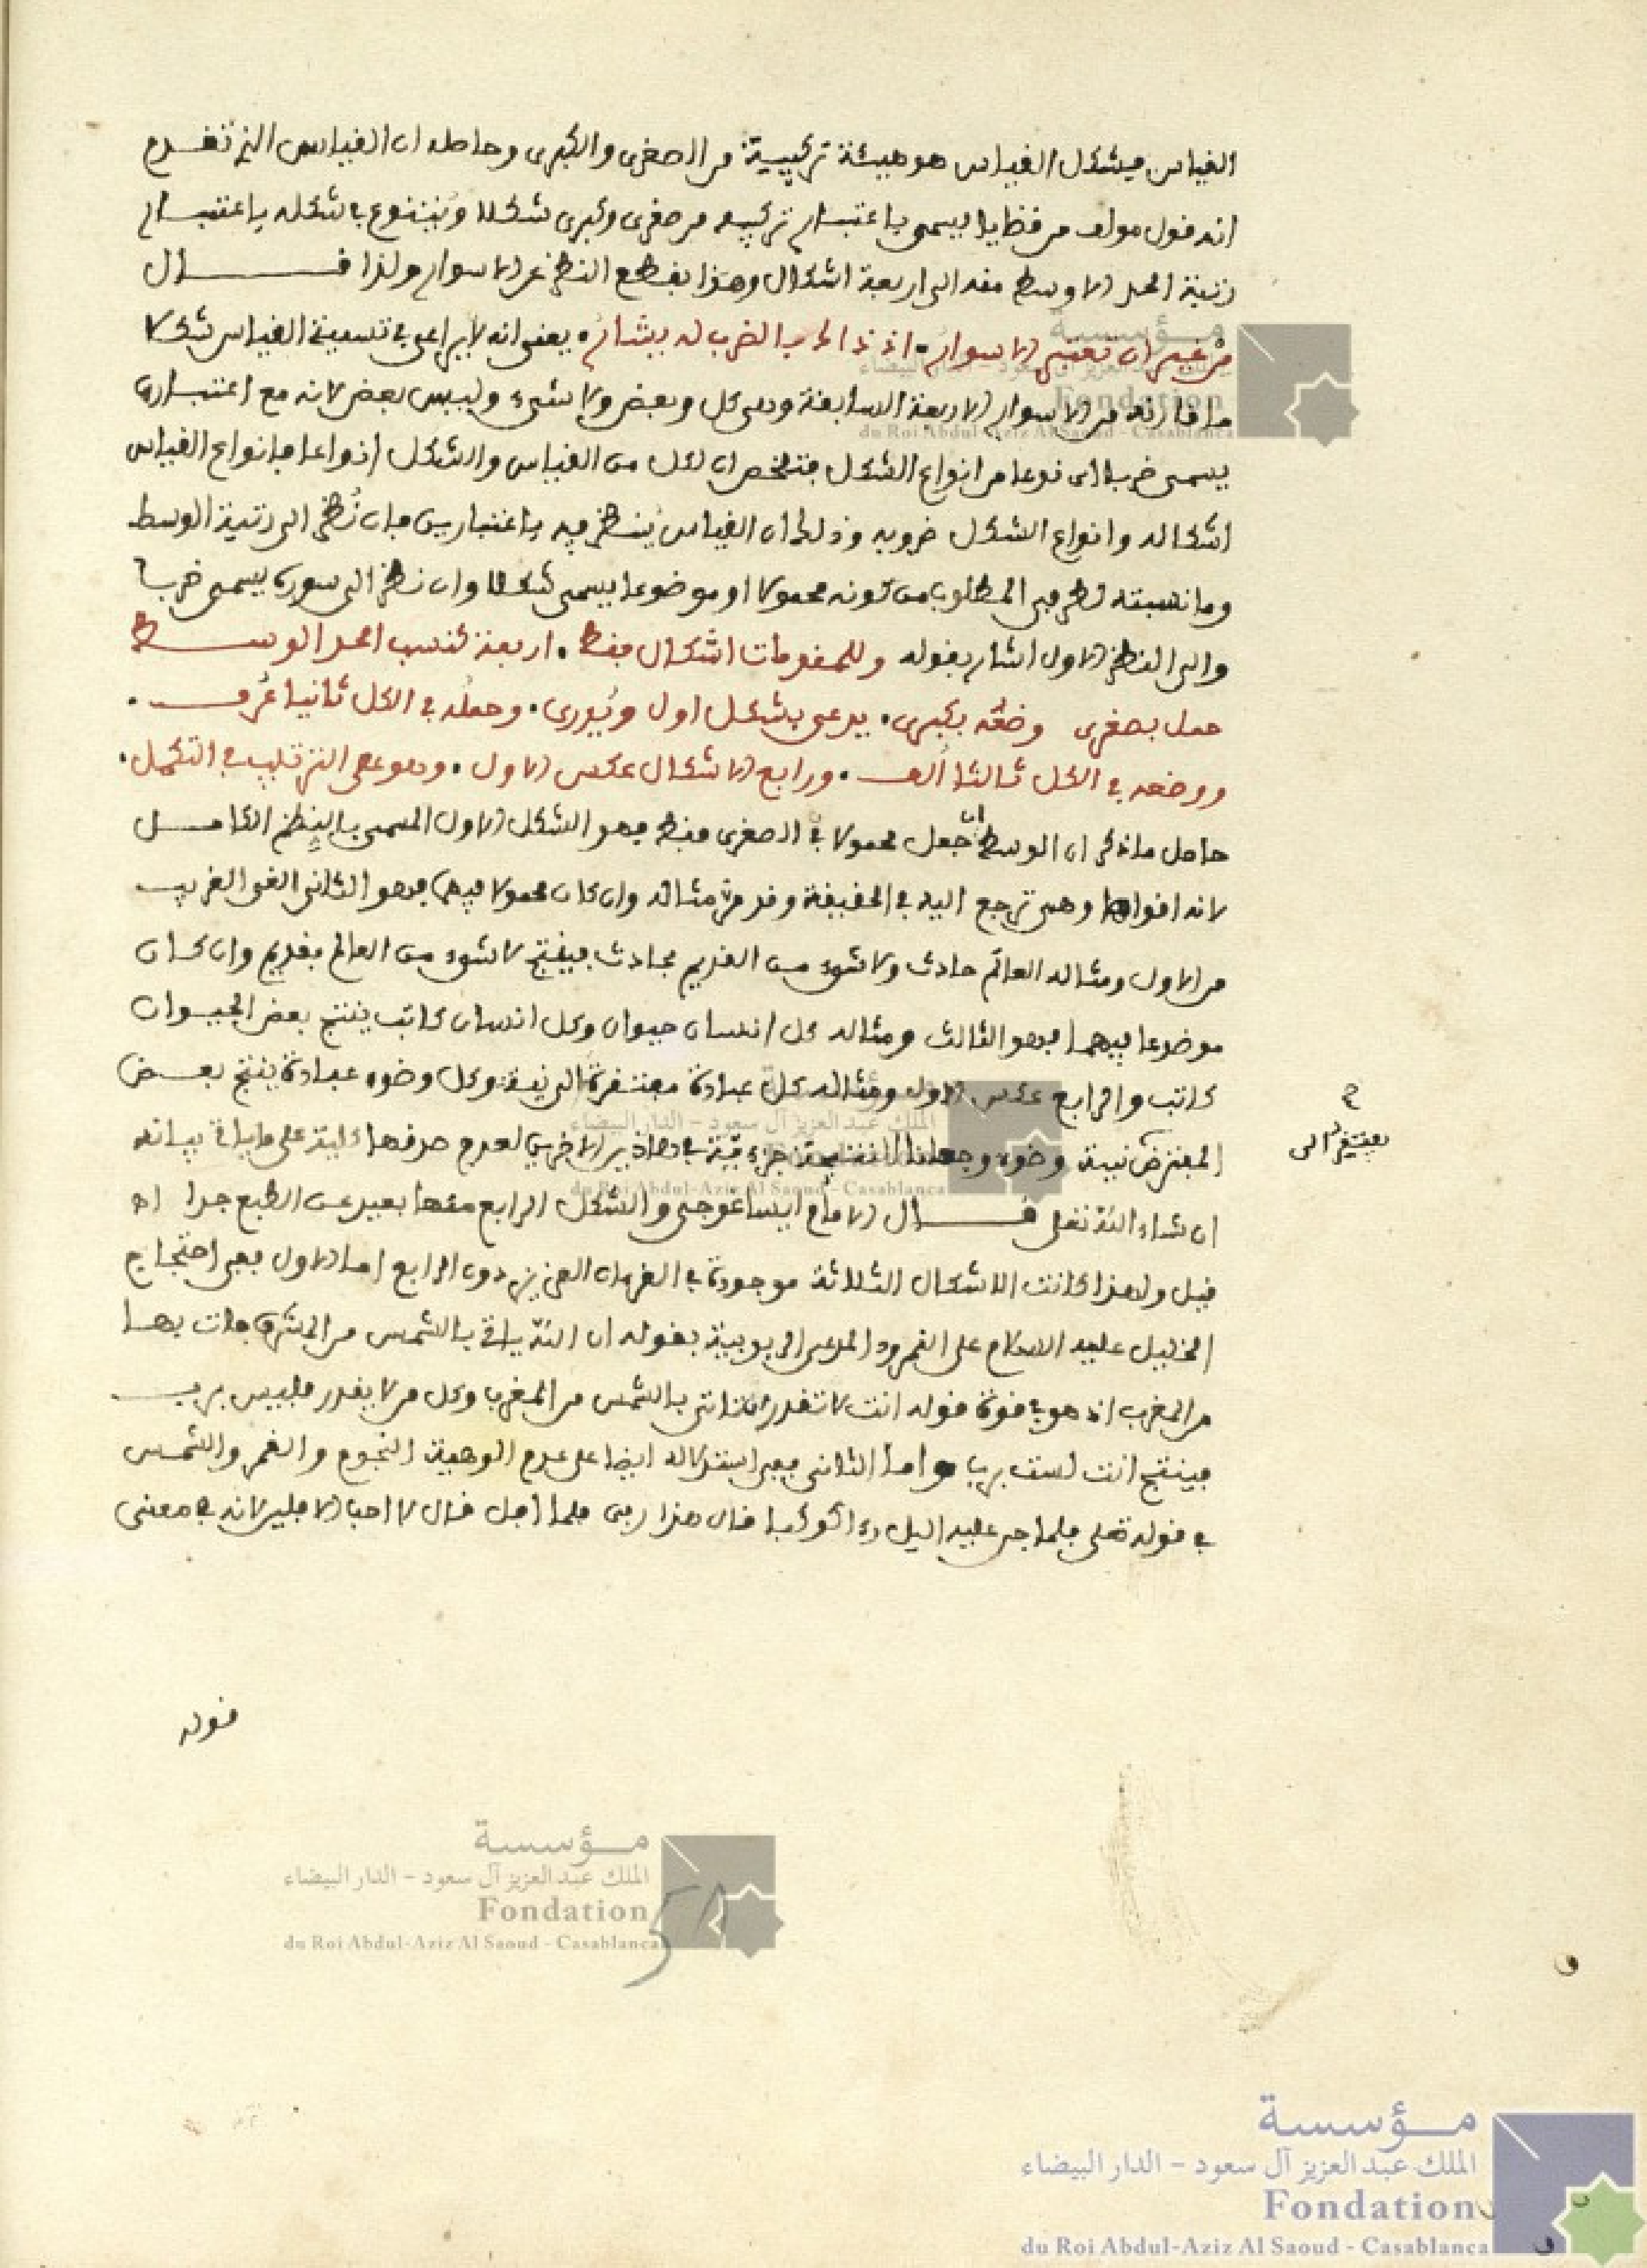 القياس فيشكل القياس هو هيئة تركيبية من الصغرى والكبرى وحاصله ان القياس الذي تقدم
انه قول مولف من قضايا يسمى باعتبار تركيبه من صغرى وكبرى شكلا ويتنوع باشكاله باعتبار
رتبة الحد الاوسط منه الى اربعة اشكال وهذا بقطع النظر عن الاسوار ولذا قال
من غير ان تعتبر الاسوار. اذ ذاك بالضرب له يشار. يعنى انه لا يراعى في تسمية القياس شكلا
ما قارنه من الاسوار الاربعة السابقة وهى كل وبعض ولا شيء وليس بعض لانه مع اعتبارها
يسمى ضربا اى نوعا من انواع الشكل فتلخص ان لكل من القياس والشكل انواعا فانواع القياس
اشكاله وانواع الشكل ضروبه وذلك ان القياس ينظر فيه باعتبارين فان نُظر الى رتبة الوسط
وما نسبته لطرفي المطلوب من كونه محمولا او موضوعا يسمى شكلا وان نظر الى سوره يسمى ضربا
والى النظر الاول اشار بقوله وللمقدمات اشكال فقط. اربعة بحسب الحد الوسط
حمل بصغرى وضعُه بكبرى. يدعى بشكل اول ويُدرى. وحملُه في الكل ثانيا عُرف.
ووضعه في الكل ثالثا اُلف. ورابع الاشكال عكس الاول. وهو على الترتيب في التكمل.
حاصل ما ذكر ان الوسط ان جعل محمولا في الصغرى فقط فهو الشكل الاول المسمى بالنظم الكامل
لانه اقواها وهى ترجع اليه في الحقيقة وقد مرّ مثاله وان كان محمولا فيهما فهو الثانى القريب
من الاول ومثاله العالَم حادث ولا شىء من القديم بحادث فينتج لا شىء من العالم بقديم وان كان
موضوعا فيهما فهو الثالث ومثاله كل انسان حيوان وكل انسان كاتب ينتج بعض الحيوان
كاتب والرابع عكس الاول ومثاله كل عبادة مفتقرة الى نية وكل وضوء عبادة ينتج بعض
المفتقر نية وضوء وجعلنا النتيجة جزءيّة في هاذين الاخرين لعدم صدقها كلية على ما ياتى بيانه
ان شاء الله تعلى قال الامام ايساغوجى والشكل الرابع منها بعيد عن الطبع جدا اه
قيل ولهذا كانت الاشكال الثلاثة موجودة في القرءان العزيز دون الرابع اما الاول ففى احتجاج
الخليل عليه السلام على النمرود المدعى الربوبية بقوله ان الله ياتى بالشمس من المشرق فات بها
من المغرب اذ هو في قوة قوله انت لا تقدر ان تاتى بالشمس من المغرب وكل من لا يقدر فليس برب
فينتج انت لست برب واما الثانى ففى استدلاله ايضا على عدم الوهية النجوم والقمر والشمس
في قوله تعلى فلما جن عليه اليل رءا كوكبا قال هذا ربى فلما افل قال لا احب الافلين لانه في معنى
يفتقر الى
قوله
مؤسسة
الملك عبد العزيز آل سعود - الدار البيضاء
Fondation
du Roi Abdul-Aziz Al Saoud - Casablanca